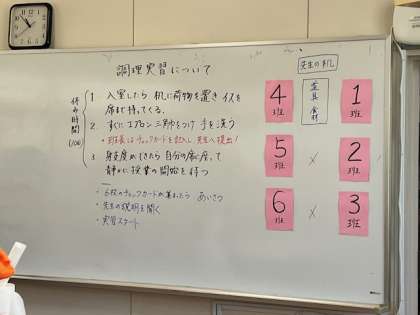 調理実習について
先生の机
休み時間
(10分)
1 入室したら 机に荷物を置き イスを
席まで持ってくる。
2. すぐにエプロン 三角巾をつけ 手を洗う
・班長はチェックカードを記入し 先生へ提出!
3 身支度ができたら 自分の席に座って
静かに 授業の開始を待つ
・6枚のチェックカードが集まったら あいさつ
・先生の説明を聞く
・実習スタート
4班
1班
5班
×
2班
6班
×
3班